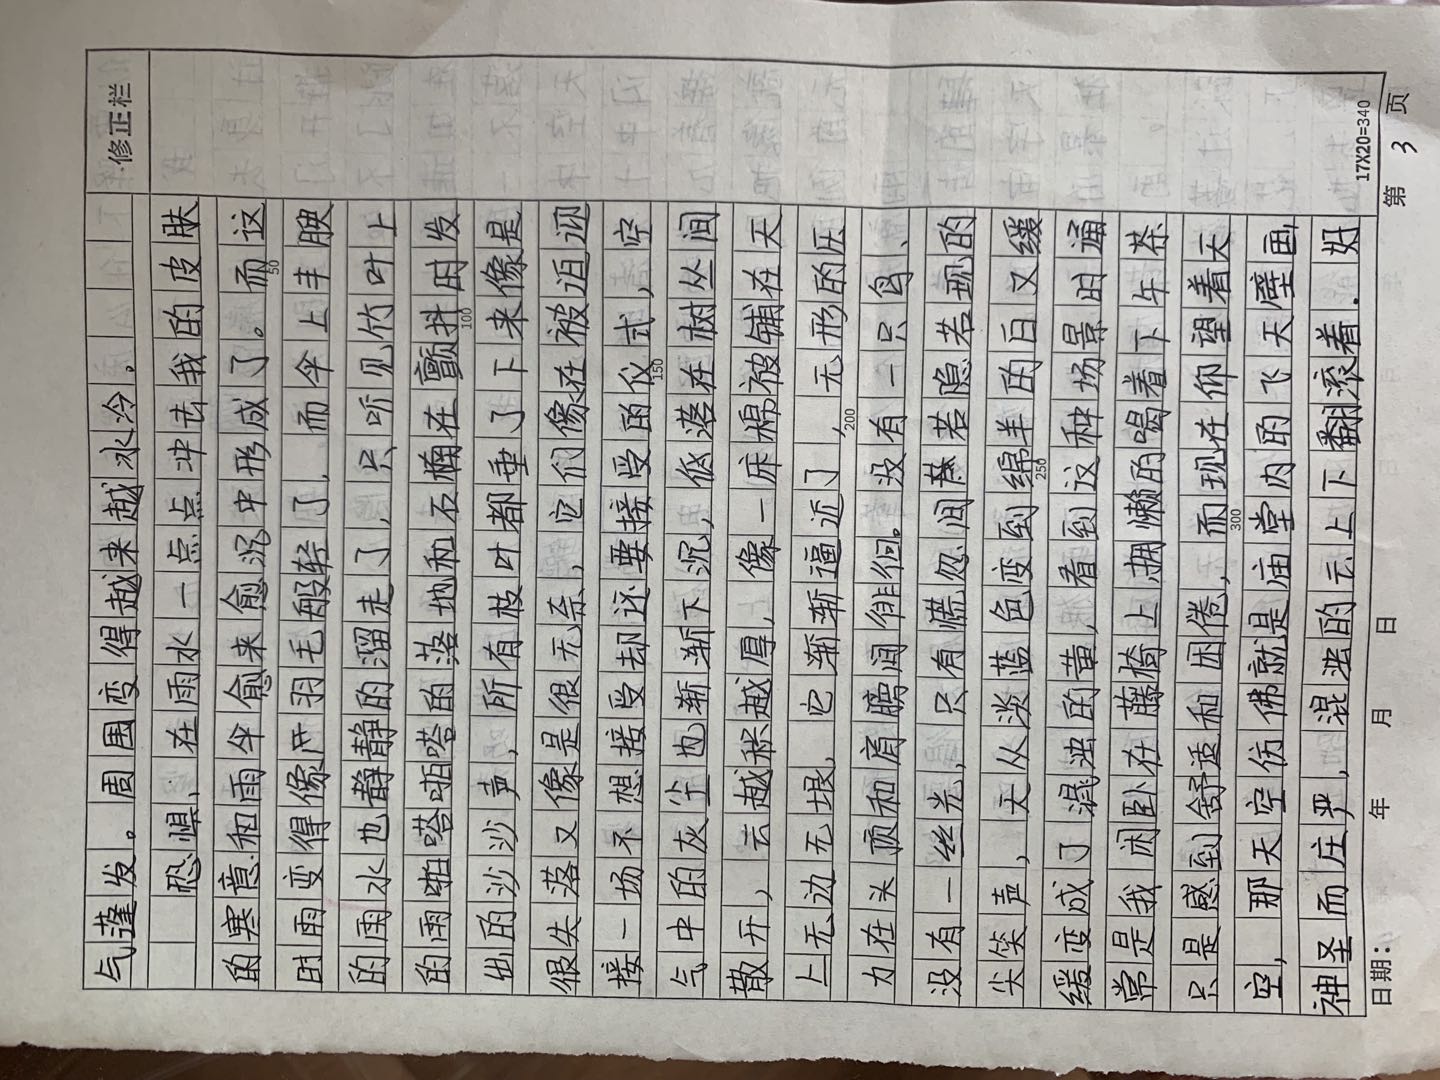 修正栏
气蓬发。周围变得越来越水冷。
恐惧，在雨水一点点冲击我的皮肤
的寒意和雨伞愈来愈沉中形成了。而这
50
时雨变得像片羽毛般轻了，而伞上半腴
的雨水也静静的溜走了，只听见竹叶上
的雨啪嗒啪嗒的落地和石楠在颤抖时发
100
出的沙沙声，所有枝叶都垂了下来像是
很失落又像是很无奈，它们像在被迫迎
接一场不想接受却还要接受的仪式，空
150
气中的灰尘也渐渐下沉，低落在树丛间
散开，云越积越厚，像一床棉被铺在天
上无边无垠，它渐渐逼近了，无形的压
200
力在头顶和肩膀间徘徊。没有一只鸟、
没有一丝光，只有慌忽间若隐若现的
尖笑声，天从淡蓝色变到绵羊的白又缓
250
缓变成了混浊的黄，看到这种场景时通
常是我闲卧在藤椅上慵懒的喝着下午茶
只是感到舒适和困倦，而现在仰望着天
300
空，那天空仿佛就是庙堂内的飞天壁画
神圣而庄严，混浊的云上下翻滚着．好
17X20=340
日期： 年 月 日 第 3 页